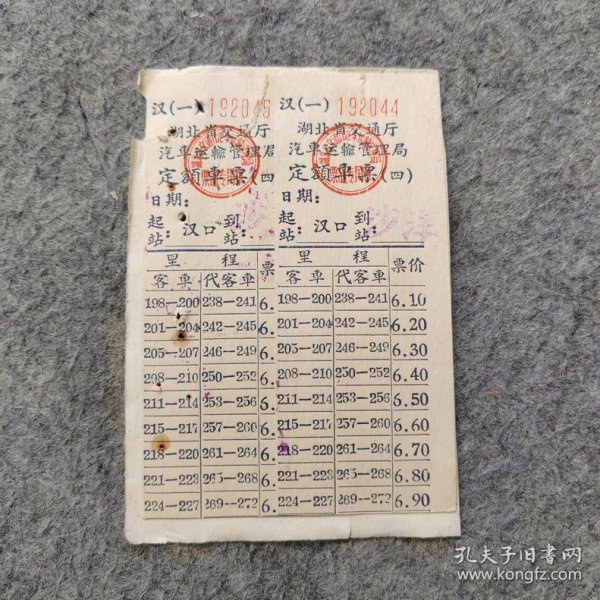 汉(一) 192045
湖北省交通厅
汽車运輸管理局
定額車票(四
日期:
起站: 汉口 到站:
里程 票
客車 代客車
198—200 238—241 6.
201—204 242—245 6.
205—207 246—249 6.
208—210 250—252 6.
211—214 253—256 6.
215—217 257—260 6.
218—220 261—264 6.
221—223 265—268 6.
224—227 269--272 6.
汉(一) 192044
湖北省交通厅
汽車运輸管理局
定額車票(四)
日期:
起站: 汉口 到站: 沙洋
里程 票价
客車 代客車
198—200 238—241 6.10
201—204 242—245 6.20
205—207 246—249 6.30
208—210 250—252 6.40
211—214 253—256 6.50
215—217 257—260 6.60
218—220 261—264 6.70
221—223 265—268 6.80
224—227 269--272 6.90
孔夫子旧书网
www.kongfz.com